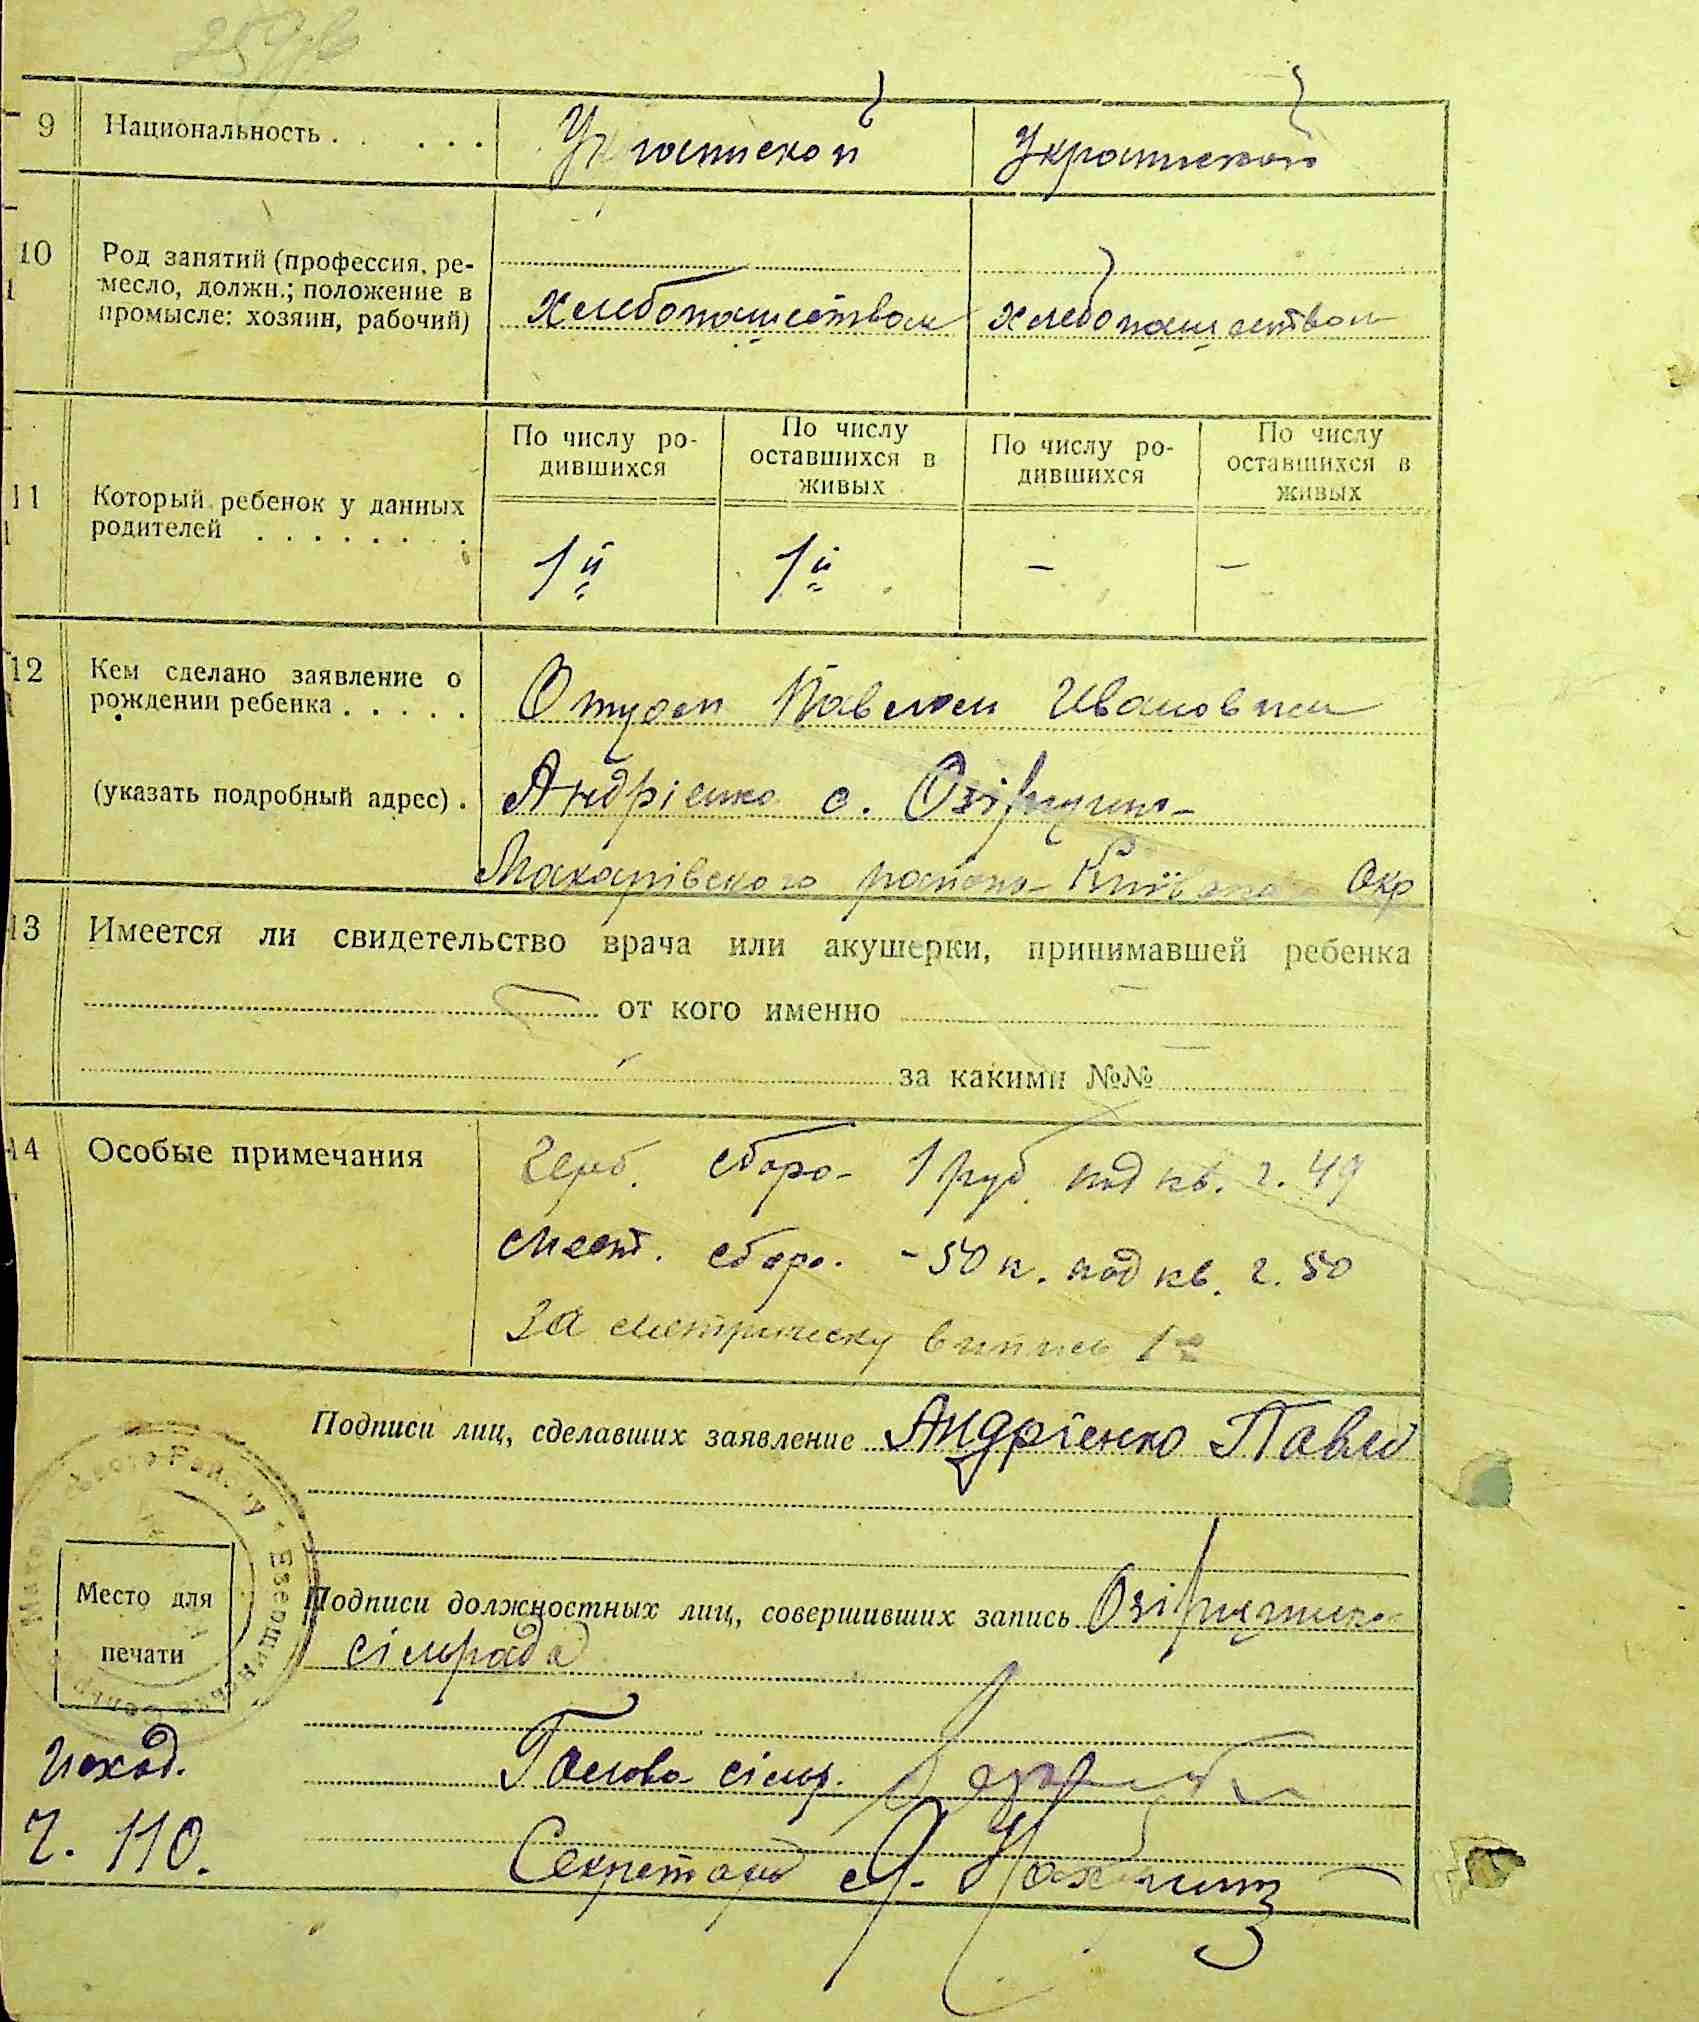 9 Национальность . . . . . Украинской Украинской
10 Род занятий (профессия, ре-
месло, должн.; положение в
промысле: хозяин, рабочий)
хлебопашеством хлебопашеством
По числу ро-
дившихся
По числу
оставшихся в
живых
По числу ро-
дившихся
По числу
оставшихся в
живых
11 Который ребенок у данных
родителей . . . . . . . .
1й 1й - -
12 Кем сделано заявление о
рождении ребенка . . . . .
Отцом Павлом Ивановим
(указать подробный адрес) . Андрієнко с. Озірщина
Макарівского района Київского Окр
13 Имеется ли свидетельство врача или акушерки, принимавшей ребенка
от кого именно
за какими №№
14 Особые примечания
Герб. сборо- 1 руб. под кв. г. 49
Мест. сборо. - 50 к. под кв. г. 50
За метрическу випись
Подписи лиц, сделавших заявление Андрієнко Павло
Место для
печати
Подписи должностных лиц, совершивших запись
сільрада
Голова сільр.
Исход.
г. 110.
Секретарь